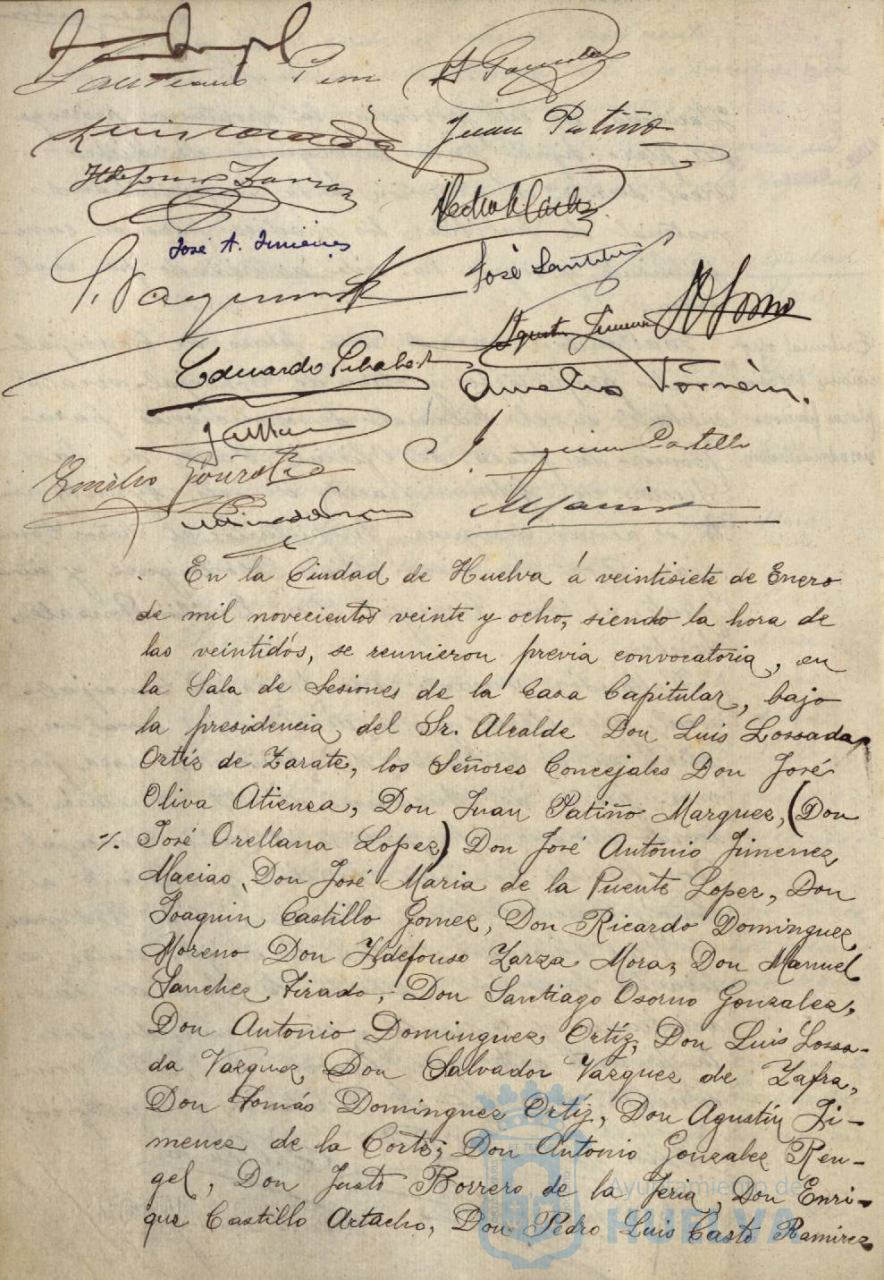 Juan Patiño
Ildefonso Zarza
José A. Jimenez
José
Agustin Jimenez
Eduardo
Emilio
En la Ciudad de Huelva á veintisiete de Enero
de mil novecientos veinte y ocho, siendo la hora de
las veintidós, se reunieron previa convocatoria, en
la Sala de Sesiones de la Casa Capitular, bajo
la presidencia del Sr. Alcalde Don Luis Lossada
Ortíz de Zarate, los Señores Concejales Don José
Oliva Atienza, Don Juan Patiño Marquez, (Don
José Orellana Lopez) Don José Antonio Jimenez
Macias, Don José Maria de la Puente Lopez, Don
Joaquin Castillo Gomez, Don Ricardo Dominguez
Moreno Don Ildefonso Zarza Mora, Don Manuel
Sanchez Tirado, Don Santiago Osorno Gonzalez,
Don Antonio Dominguez Ortíz, Don Luis Lossa-
da Vazquez, Don Salvador Vazquez de Zafra,
Don Tomás Dominguez Ortíz, Don Agustín Ji-
menez de la Corte, Don Antonio Gonzalez Ren-
gel, Don Justo Borrero de la Feria, Don Enri-
que Castillo Artacho, Don Pedro Luis Casto Ramirez
Ayuntamiento de
HUELVA